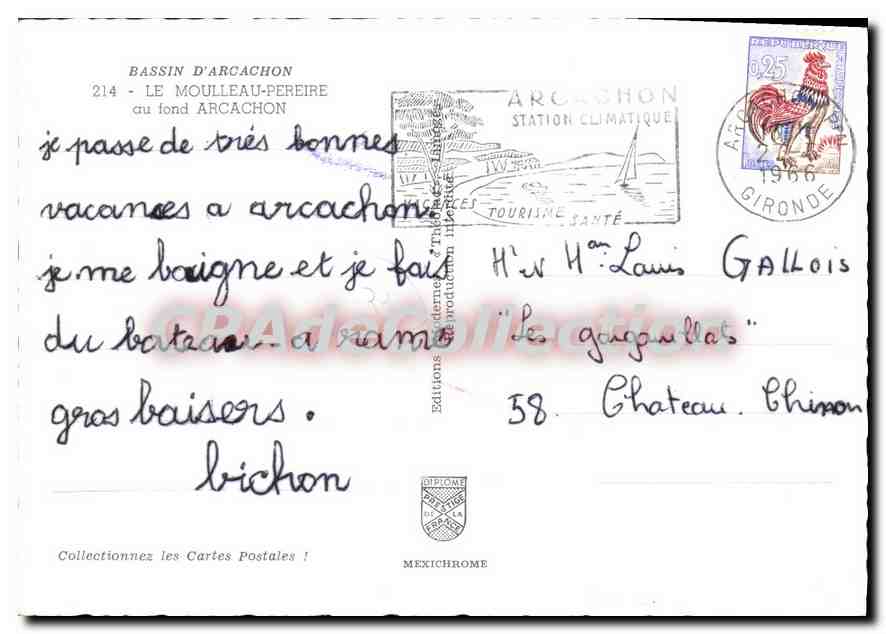 BASSIN D'ARCACHON
214 - LE MOULLEAU-PEREIRE
au fond ARCACHON
je passe de trés bonnes
vacances a arcachon.
je me baigne et je fais
du bateau a rame
gros baisers.
bichon
Collectionnez les Cartes Postales !
Editions Modernes
Reproduction interdite
DIPLOME
PRESTIGE
DE LA
FRANCE
MEXICHROME
ARCACHON
STATION CLIMATIQUE
VACANCES TOURISME SANTÉ
0,25
1966
GIRONDE
Mr et Mme Louis GALLOIS
"Les gargouillats"
58. Chateau. Chinon
CPAdeCollection